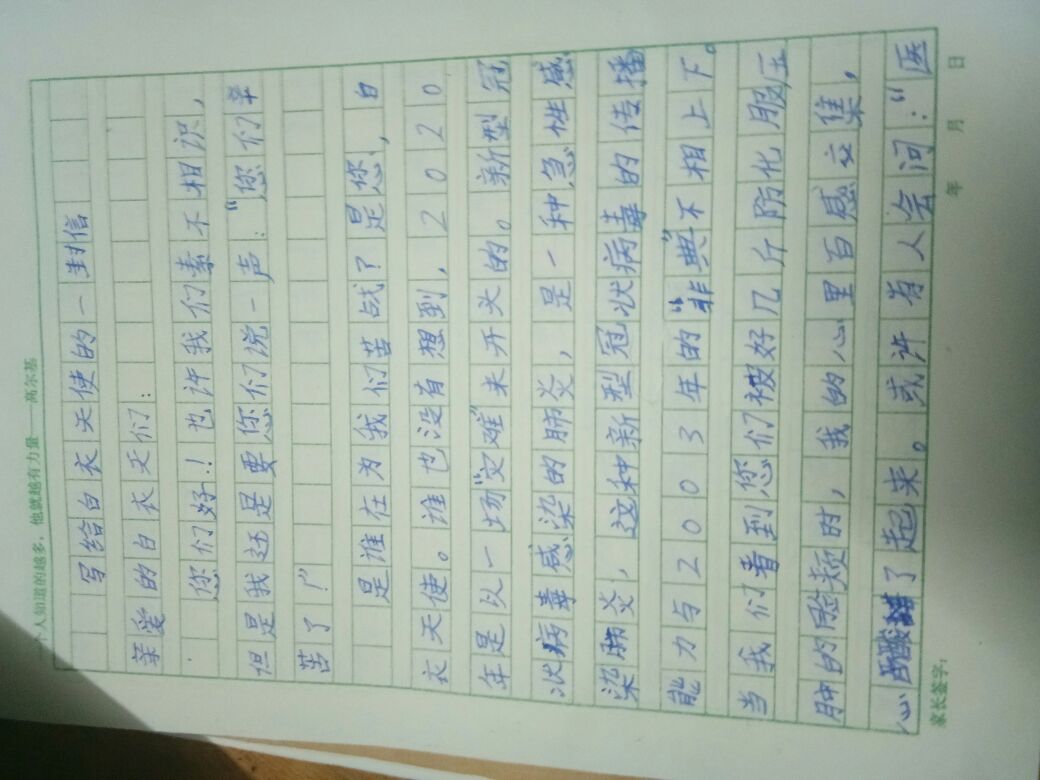 个人知道的越多，他就越有力量——高尔基
写给白衣天使的一封信
亲爱的白衣天们：
您们好！也许我们素不相识，
但是我还是要您们说一声：“您们辛
苦了！”
是谁在为我们苦战？是您，白
衣天使。谁也没有想到，2020
年是以一场“灾难”来开头的。新型冠
状病毒感染的肺炎，是一种急性感
染肺炎，这种新型冠状病毒的传播
能力与2003年的“非典”不相上下。
当我们看到您们被好几斤防化服压
肿的脸颊时，我的心里百感交集，
心酸了起来。或许有人会问：“医
家长签字：
年 月 日